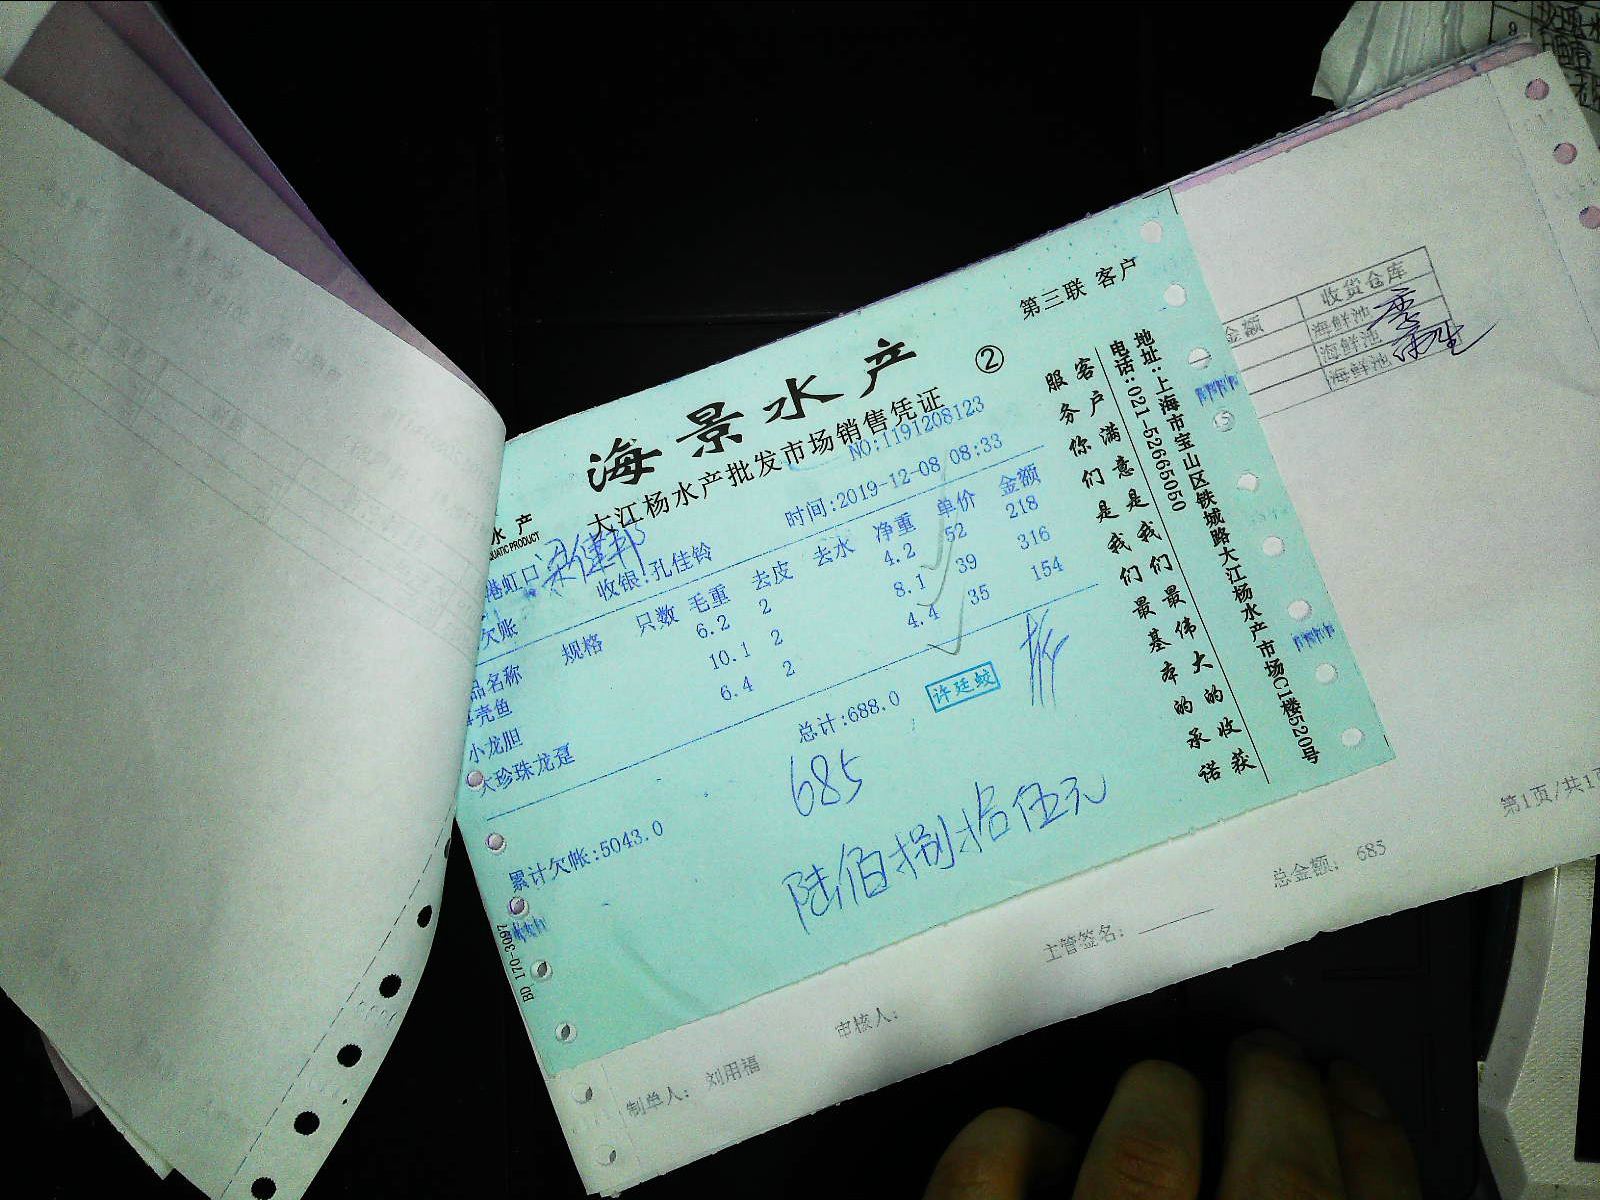 第三联 客户
海景水产 ②
大江杨水产批发市场销售凭证
NO:1191208123
水产
UATIC PRODUCT
时间:2019-12-08 08:33
港虹口
收银:孔佳铃
欠账
品名称 规格 只数 毛重 去皮 去水 净重 单价 金额
壳鱼 6.2 2 4.2 52 218
小龙胆 10.1 2 8.1 39 316
大珍珠龙趸 6.4 2 4.4 35 154
总计:688.0
许廷蛟
685
陆佰捌拾伍元
累计欠帐:5043.0
BD 170-3097
客户满意是我们最伟大的收获
服务你们是我们最基本的承诺
地址:上海市宝山区铁城路大江杨水产市场C1楼520号
电话:021-52665050
金额 收货仓库
海鲜池
海鲜池
海鲜池
第1页/共1页
总金额: 685
主管签名:
审核人:
制单人: 刘用福